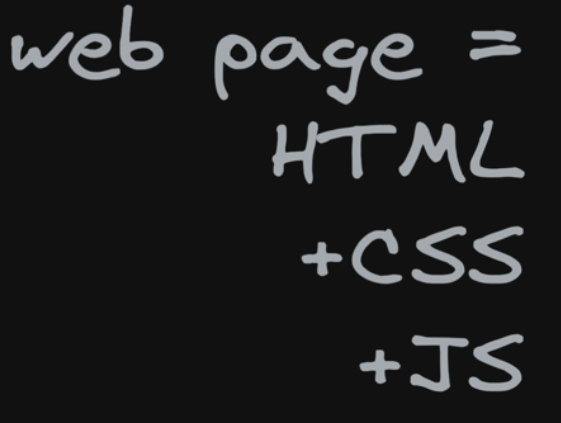 web page =
HTML
+CSS
+JS